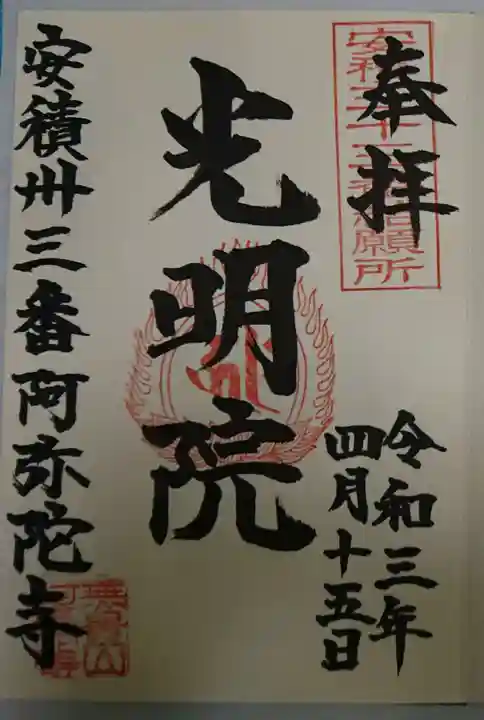 奉拝
安積三十三番結願所
光明院
令和三年
四月十五日
安積卅三番阿弥陀寺